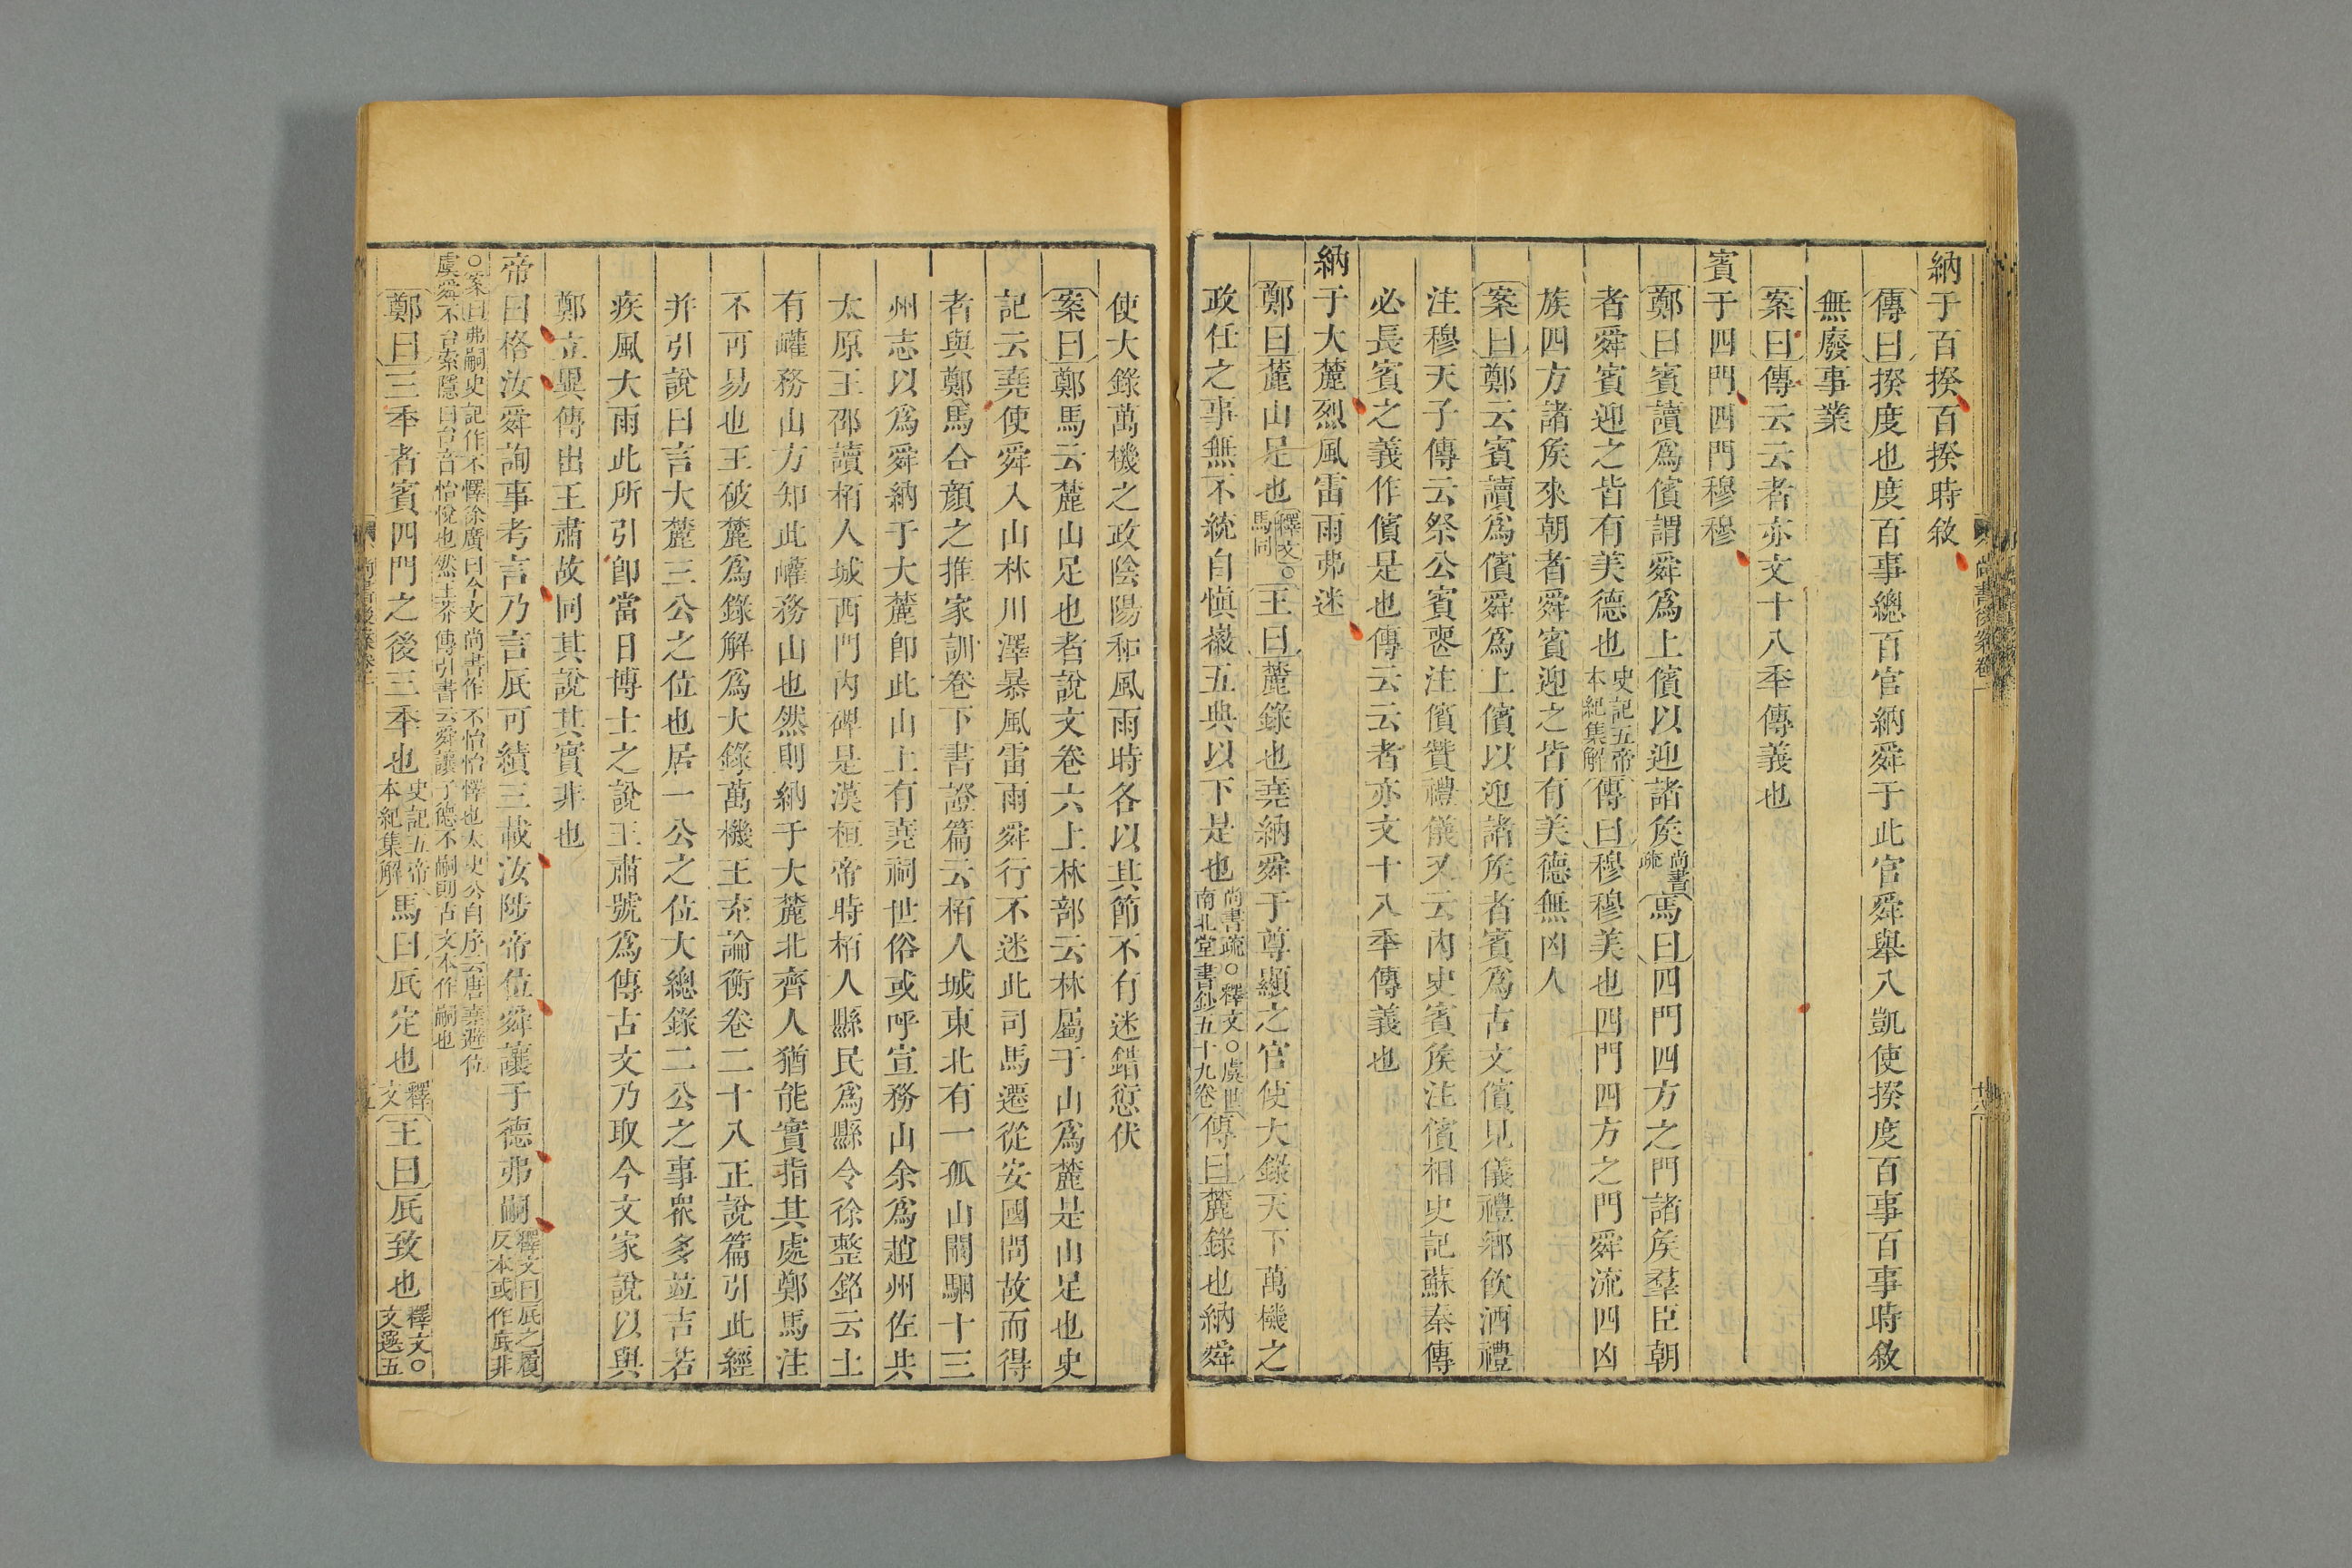 納于百揆百揆時敘
傳曰揆度也度百事總百官納舜于此官舜舉八凱使揆度百事百事時敘
無廢事業
案曰傳云云者亦文十八年傳義也
賓于四門四門穆穆
鄭曰賓讀爲儐謂舜爲上儐以迎諸矦尚書疏馬曰四門四方之門諸矦羣臣朝
者舜賓迎之皆有美德也史記五帝本紀集解傳曰穆穆美也四門四方之門舜流四凶
族四方諸矦來朝者舜賓迎之皆有美德無凶人
案曰鄭云賓讀爲儐舜爲上儐以迎諸矦者賓爲古文儐見儀禮鄉飲酒禮
注穆天子傳云祭公賓喪注儐贊禮儀又云內史賓矦注儐相史記蘇秦傳
必長賓之義作儐是也傳云云者亦文十八年傳義也
納于大麓烈風雷雨弗迷
鄭曰麓山足也釋文○馬同王曰麓錄也堯納舜于尊顯之官使大錄天下萬機之
政任之事無不統自慎徽五典以下是也尚書疏○釋文○虞世南北堂書鈔五十九卷傳曰麓錄也納舜
尚書後案卷一
使大錄萬機之政陰陽和風雨時各以其節不有迷錯愆伏
案曰鄭馬云麓山足也者說文卷六上林部云林屬于山爲麓是山足也史
記云堯使舜入山林川澤暴風雷雨舜行不迷此司馬遷從安國問故而得
者與鄭馬合顏之推家訓卷下書證篇云柏人城東北有一孤山闞駰十三
州志以爲舜納于大麓卽此山上有堯祠世俗或呼宣務山余爲趙州佐共
太原王邵讀柏人城西門內碑是漢桓帝時柏人縣民爲縣令徐整銘云土
有巏務山方知此巏務山也然則納于大麓北齊人猶能實指其處鄭馬注
不可易也王破麓爲錄解爲大錄萬機王充論衡卷二十八正說篇引此經
并引說曰言大麓三公之位也居一公之位大總錄二公之事衆多竝吉若
疾風大雨此所引卽當日博士之說王肅號爲傳古文乃取今文家說以與
鄭立異傳出王肅故同其說其實非也
帝曰格汝舜詢事考言乃言厎可績三載汝陟帝位舜讓于德弗嗣釋文曰厎之履反本或作底非
○案曰弗嗣史記作不懌徐廣曰今文尚書作不怡怡懌也太史公自序云唐堯遜位
虞舜不台索隱曰台音怡悅也然王莽傳引書云舜讓于德不嗣則古文本作嗣也
鄭曰三年者賓四門之後三年也史記五帝本紀集解馬曰厎定也釋文王曰厎致也釋文○文選五